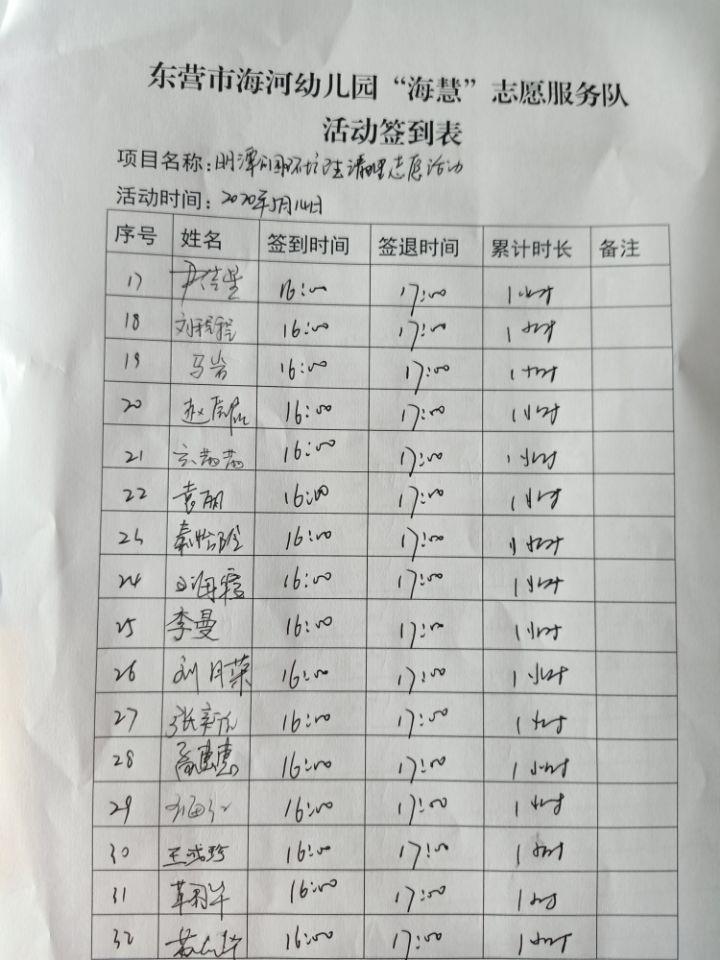 东营市海河幼儿园“海慧”志愿服务队
活动签到表
项目名称：明潭公园环境卫生清理志愿活动
活动时间：2020年5月14日
序号 姓名 签到时间 签退时间 累计时长 备注
17 尹佳星 16:00 17:00 1小时
18 刘程程 16:00 17:00 1小时
19 马岩 16:00 17:00 1小时
20 赵 16:00 17:00 1小时
21 16:00 17:00 1小时
22 袁丽 16:00 17:00 1小时
23 秦怡 16:00 17:00 1小时
24 海霞 16:00 17:00 1小时
25 李曼 16:00 17:00 1小时
26 刘月荣 16:00 17:00 1小时
27 张 16:00 17:00 1小时
28 16:00 17:00 1小时
29 16:00 17:00 1小时
30 王 16:00 17:00 1小时
31 16:00 17:00 1小时
32 16:00 17:00 1小时